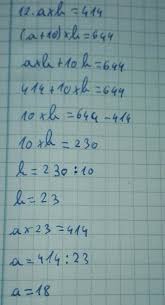 12. a×b=414
(a+10)×b=644
a×b+10b=644
414+10×b=644
10×b=644-414
10×b=230
b=230:10
b=23
a×23=414
a=414:23
a=18